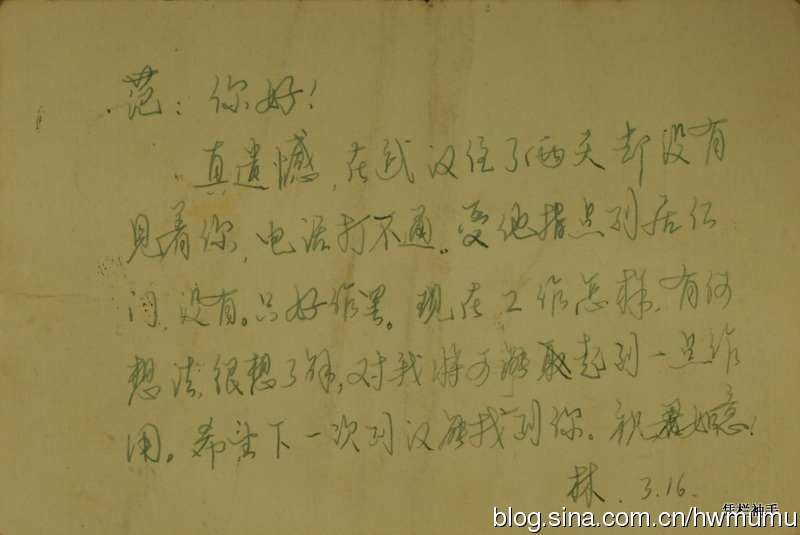 范：你好！
真遗憾，在武汉住了两天却没有
见着你，电话打不通。受他指点到居仁
门，没有。只好作罢。现在工作怎样，有何
想法，很想了解，对我将可能起到一点作
用。希望下一次到汉能找到你。祝万事如意！
林．3.16.
凭栏袖手
blog.sina.com.cn/hwmumu